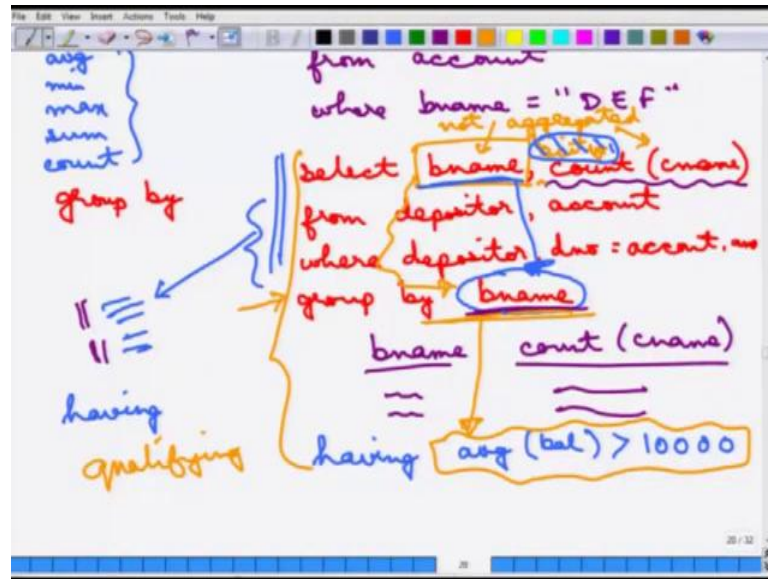 File Edit View Insert Actions Tools Help
avg
min
max
sum
count
group by
from account
where bname = "DEF"
not aggregated
select bname, count (cname)
from depositor, account
where depositor. dno = accont. ano
group by bname
bname count (cname)
having
qualifying
having avg (bal) > 10000
20 / 32
20